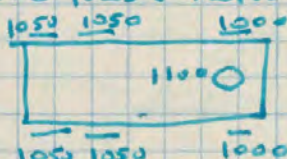 1050 1050 1000
1100
1050 1050 1000